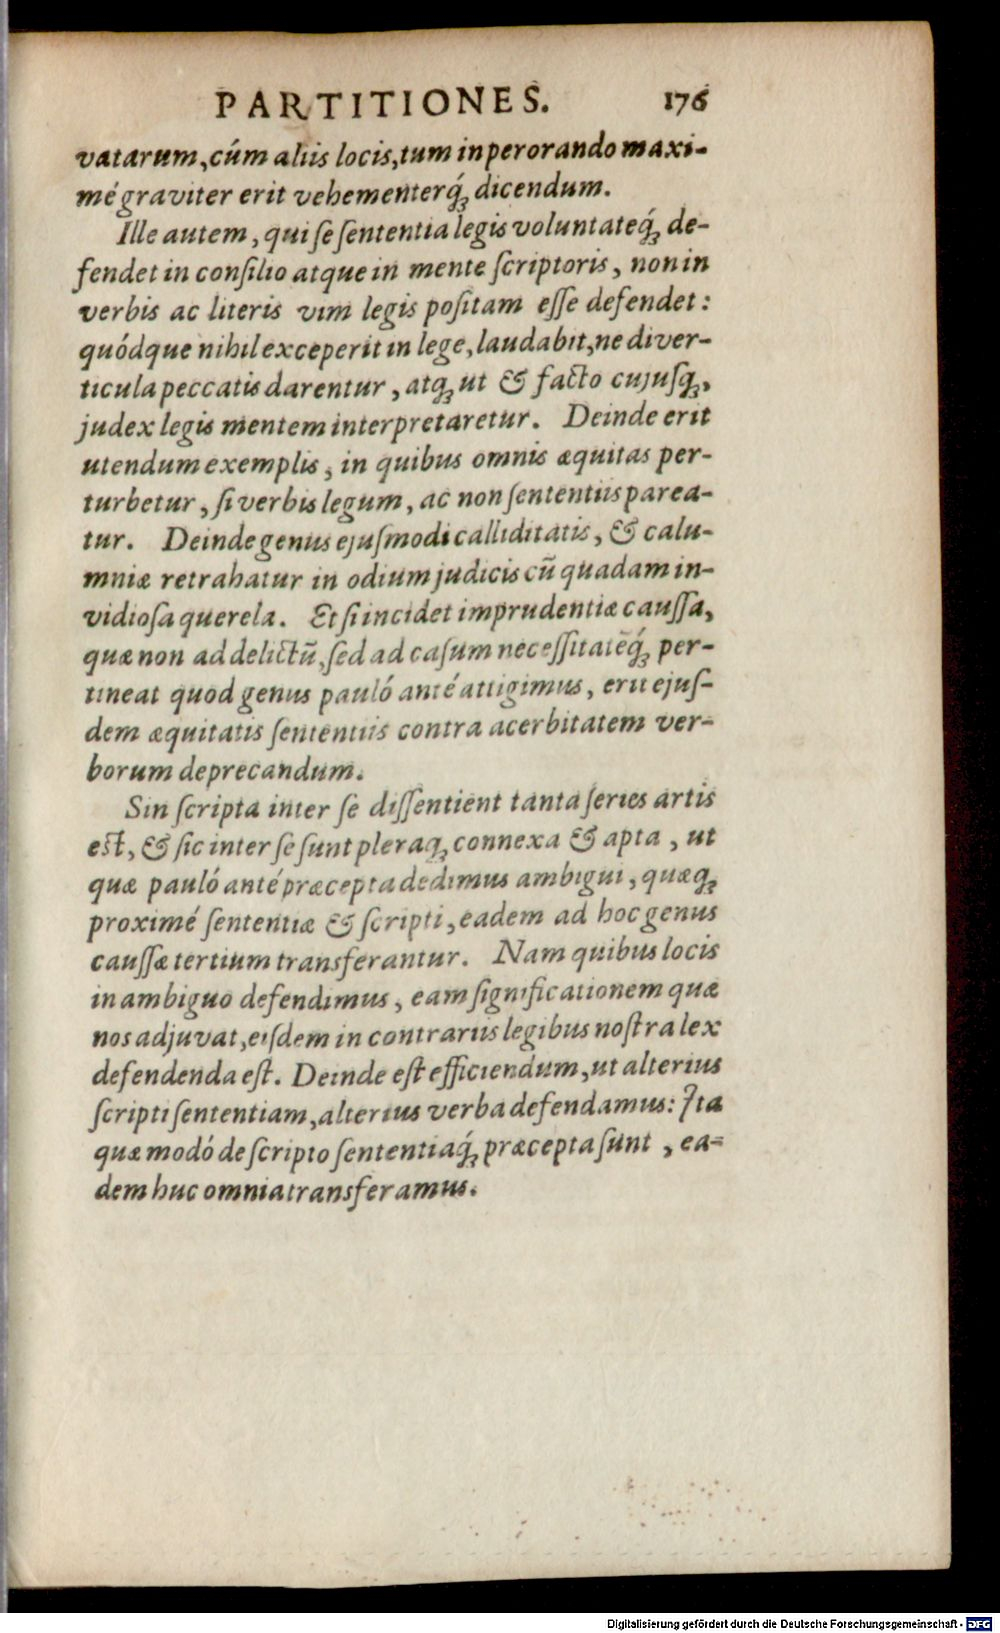 PARTITIONES. 176
vatarum, cúm aliis locis, tum in perorando maxi-
mé graviter erit vehementerq́ꝫ dicendum.
Ille autem, qui ſe ſententia legis voluntateq́ꝫ de-
fendet in conſilio atque in mente ſcriptoris, non in
verbis ac literis vim legis poſitam eſſe defendet:
quódque nihil exceperit in lege, laudabit, ne diver-
ticula peccatis darentur, atqꝫ ut & facto cujuſqꝫ,
judex legis mentem interpretaretur. Deinde erit
utendum exemplis, in quibus omnis æquitas per-
turbetur, ſi verbis legum, ac non ſententiis parea-
tur. Deinde genus ejuſmodi calliditatis, & calu-
mniæ retrahatur in odium judicis cū quadam in-
vidioſa querela. Et ſi incidet imprudentiæ cauſſa,
quæ non ad delictū, ſed ad caſum neceſſitatēq́ꝫ per-
tineat quod genus pauló anté attigimus, erit ejuſ-
dem æquitatis ſententiis contra acerbitatem ver-
borum deprecandum.
Sin ſcripta inter ſe diſſentient tanta ſeries artis
eſt, & ſic inter ſe ſunt pleraqꝫ connexa & apta, ut
quæ pauló anté præcepta dedimus ambigui, quæqꝫ
proximé ſententiæ & ſcripti, eadem ad hoc genus
cauſſæ tertium transferantur. Nam quibus locis
in ambiguo defendimus, eam ſignificationem quæ
nos adjuvat, eiſdem in contrariis legibus noſtra lex
defendenda eſt. Deinde eſt efficiendum, ut alterius
ſcripti ſententiam, alterius verba defendamus: Ita
quæ modó de ſcripto ſententiaq́ꝫ præcepta ſunt, ea-
dem huc omnia transferamus.
Digitalisierung gefördert durch die Deutsche Forschungsgemeinschaft - DFG